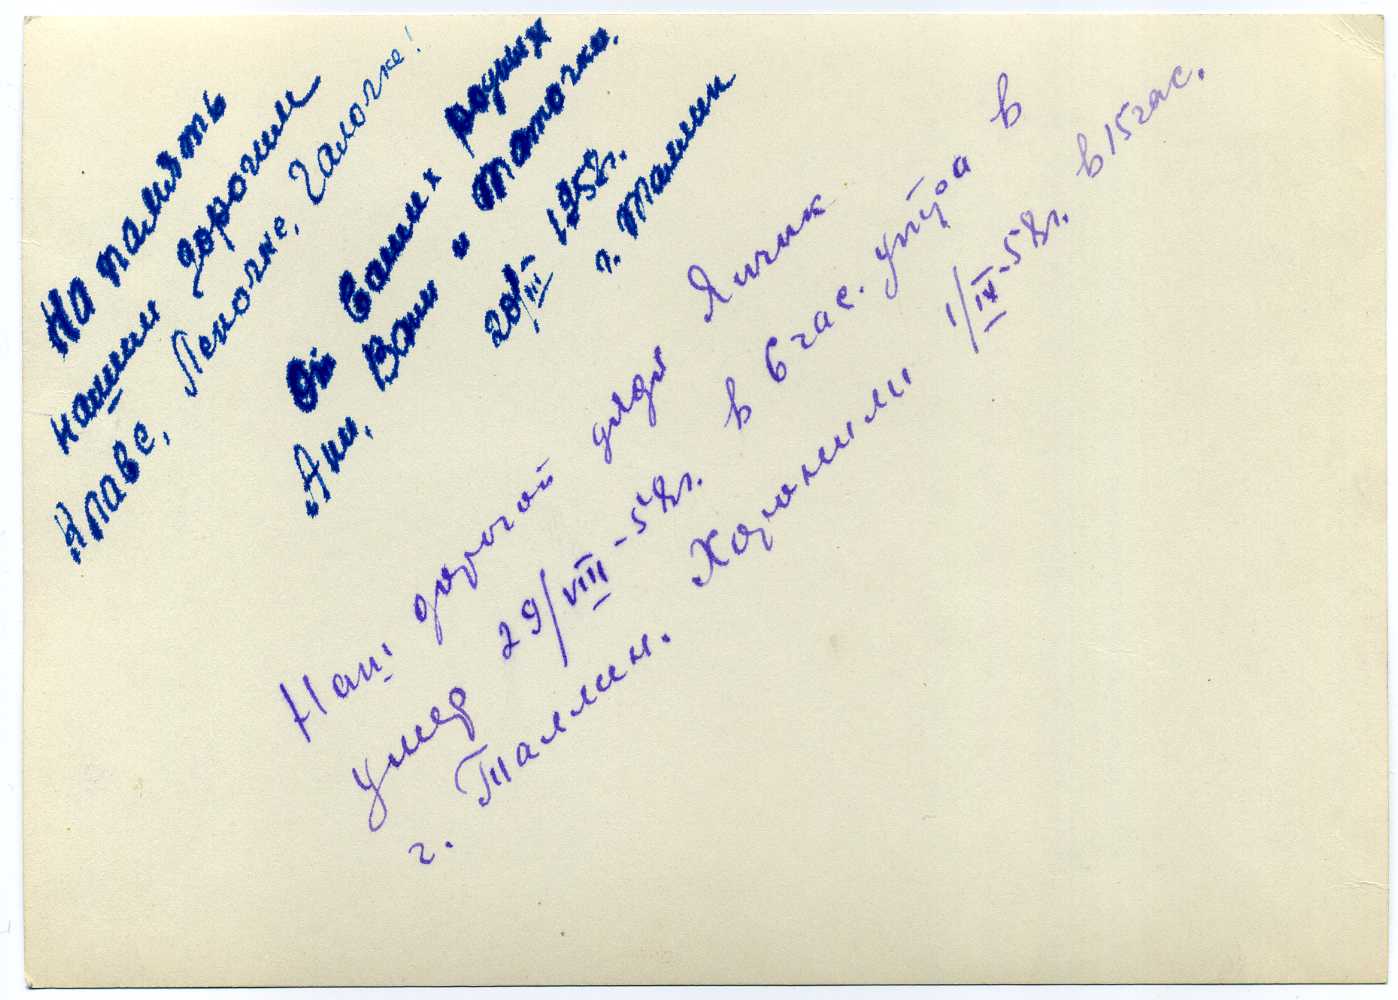 На память
нашим дорогим
Клаве, Леночке, Галочке!
От Ваших родных
Ани, Вани и Таточки.
20/VIII 1958г.
г. Таллин
Наш дорогой дядя Яичик
умер 29/VIII-58г. в 6 час. утра в
г. Таллин. Хоронили 1/IX-58г. в 15 час.